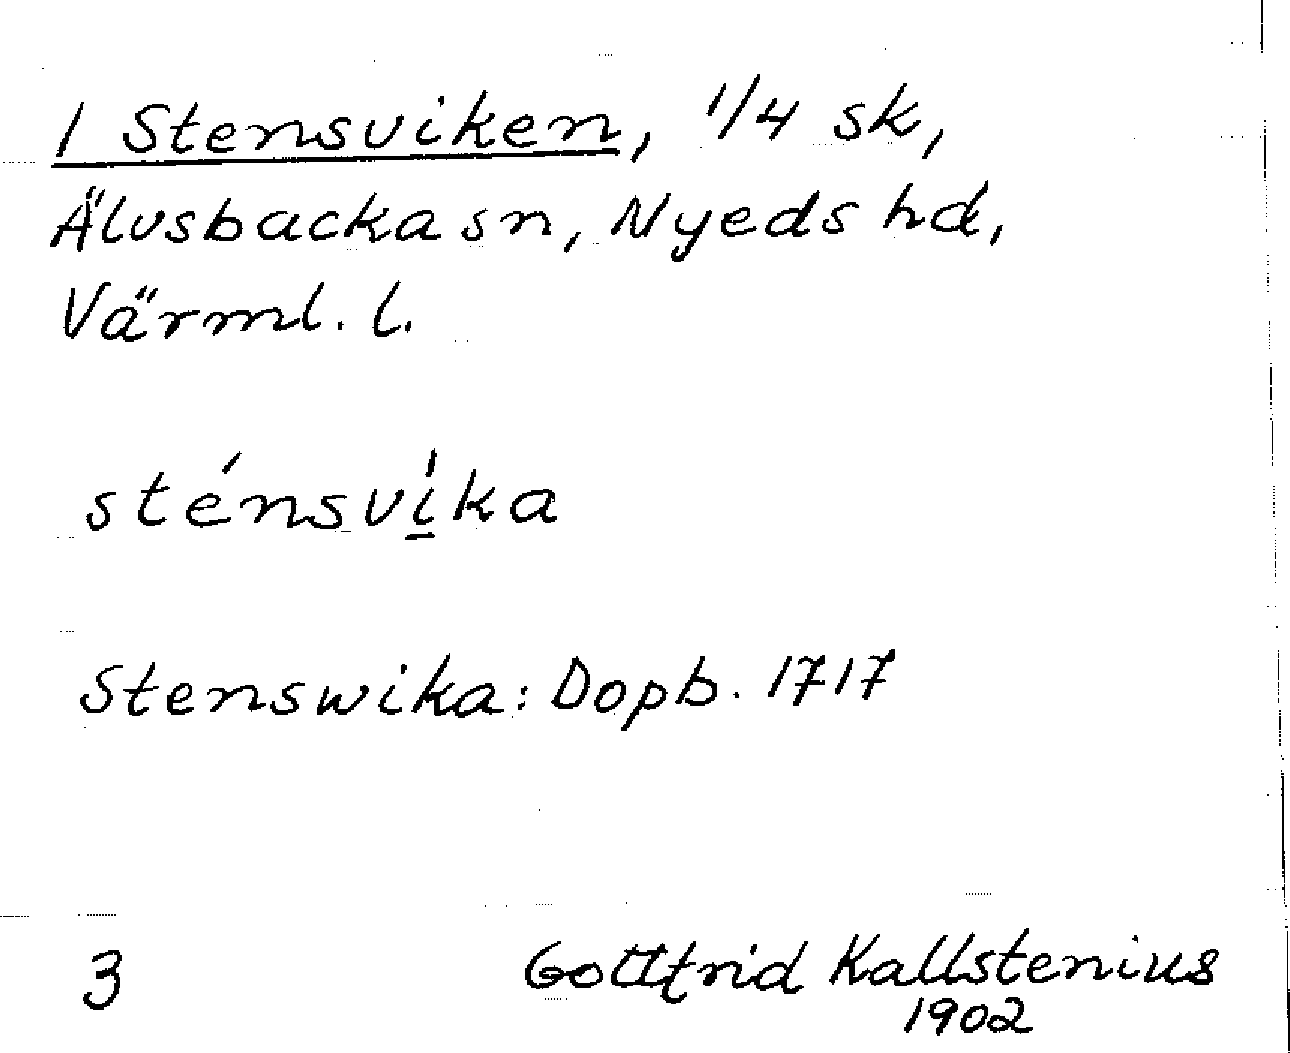 1 Stensviken, 1/4 sk,
Älvsbacka sn, Nyeds hd,
Värml. l.
sténsvi̱̍ka
Stenswika: Dopb. 1717
3 Gottfrid Kallstenius
1902